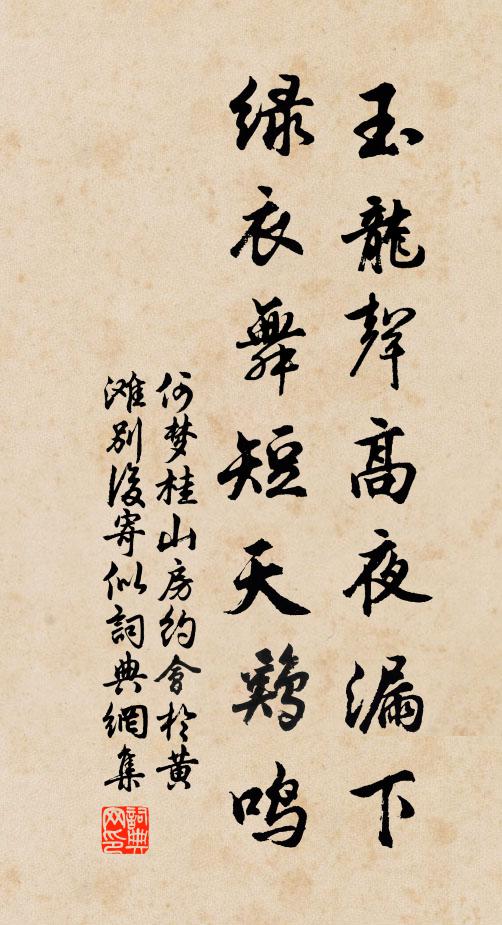 玉龍聲高夜漏下
绿衣舞短天鷄鸣
何梦桂山房约會於黄
滩别後寄似詞典網集
詞典网印